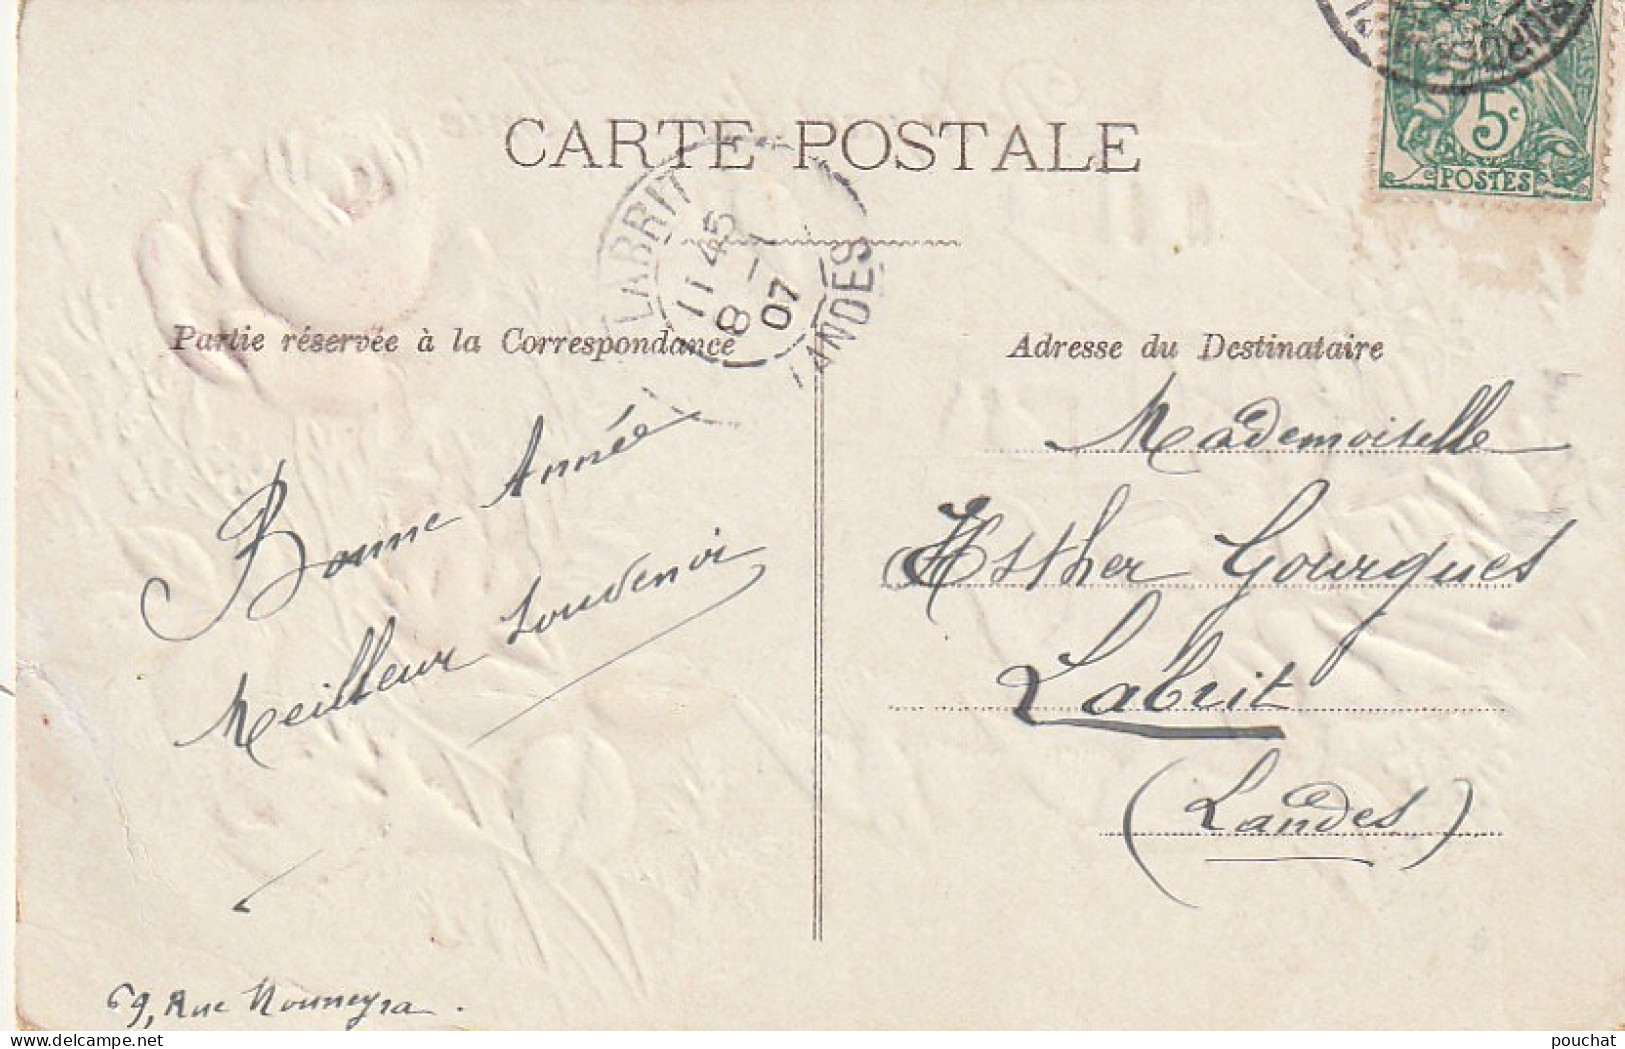 CARTE POSTALE
5c
POSTES
LABRIT
11 45
8 -1
07
LANDES
Partie réservée à la Correspondance
Adresse du Destinataire
Bonne Année
Meilleur souvenir
69, Rue Mouneyra.
Mademoiselle
Esther Gourgues
Labrit
(Landes)
delcampe.net
pouchat